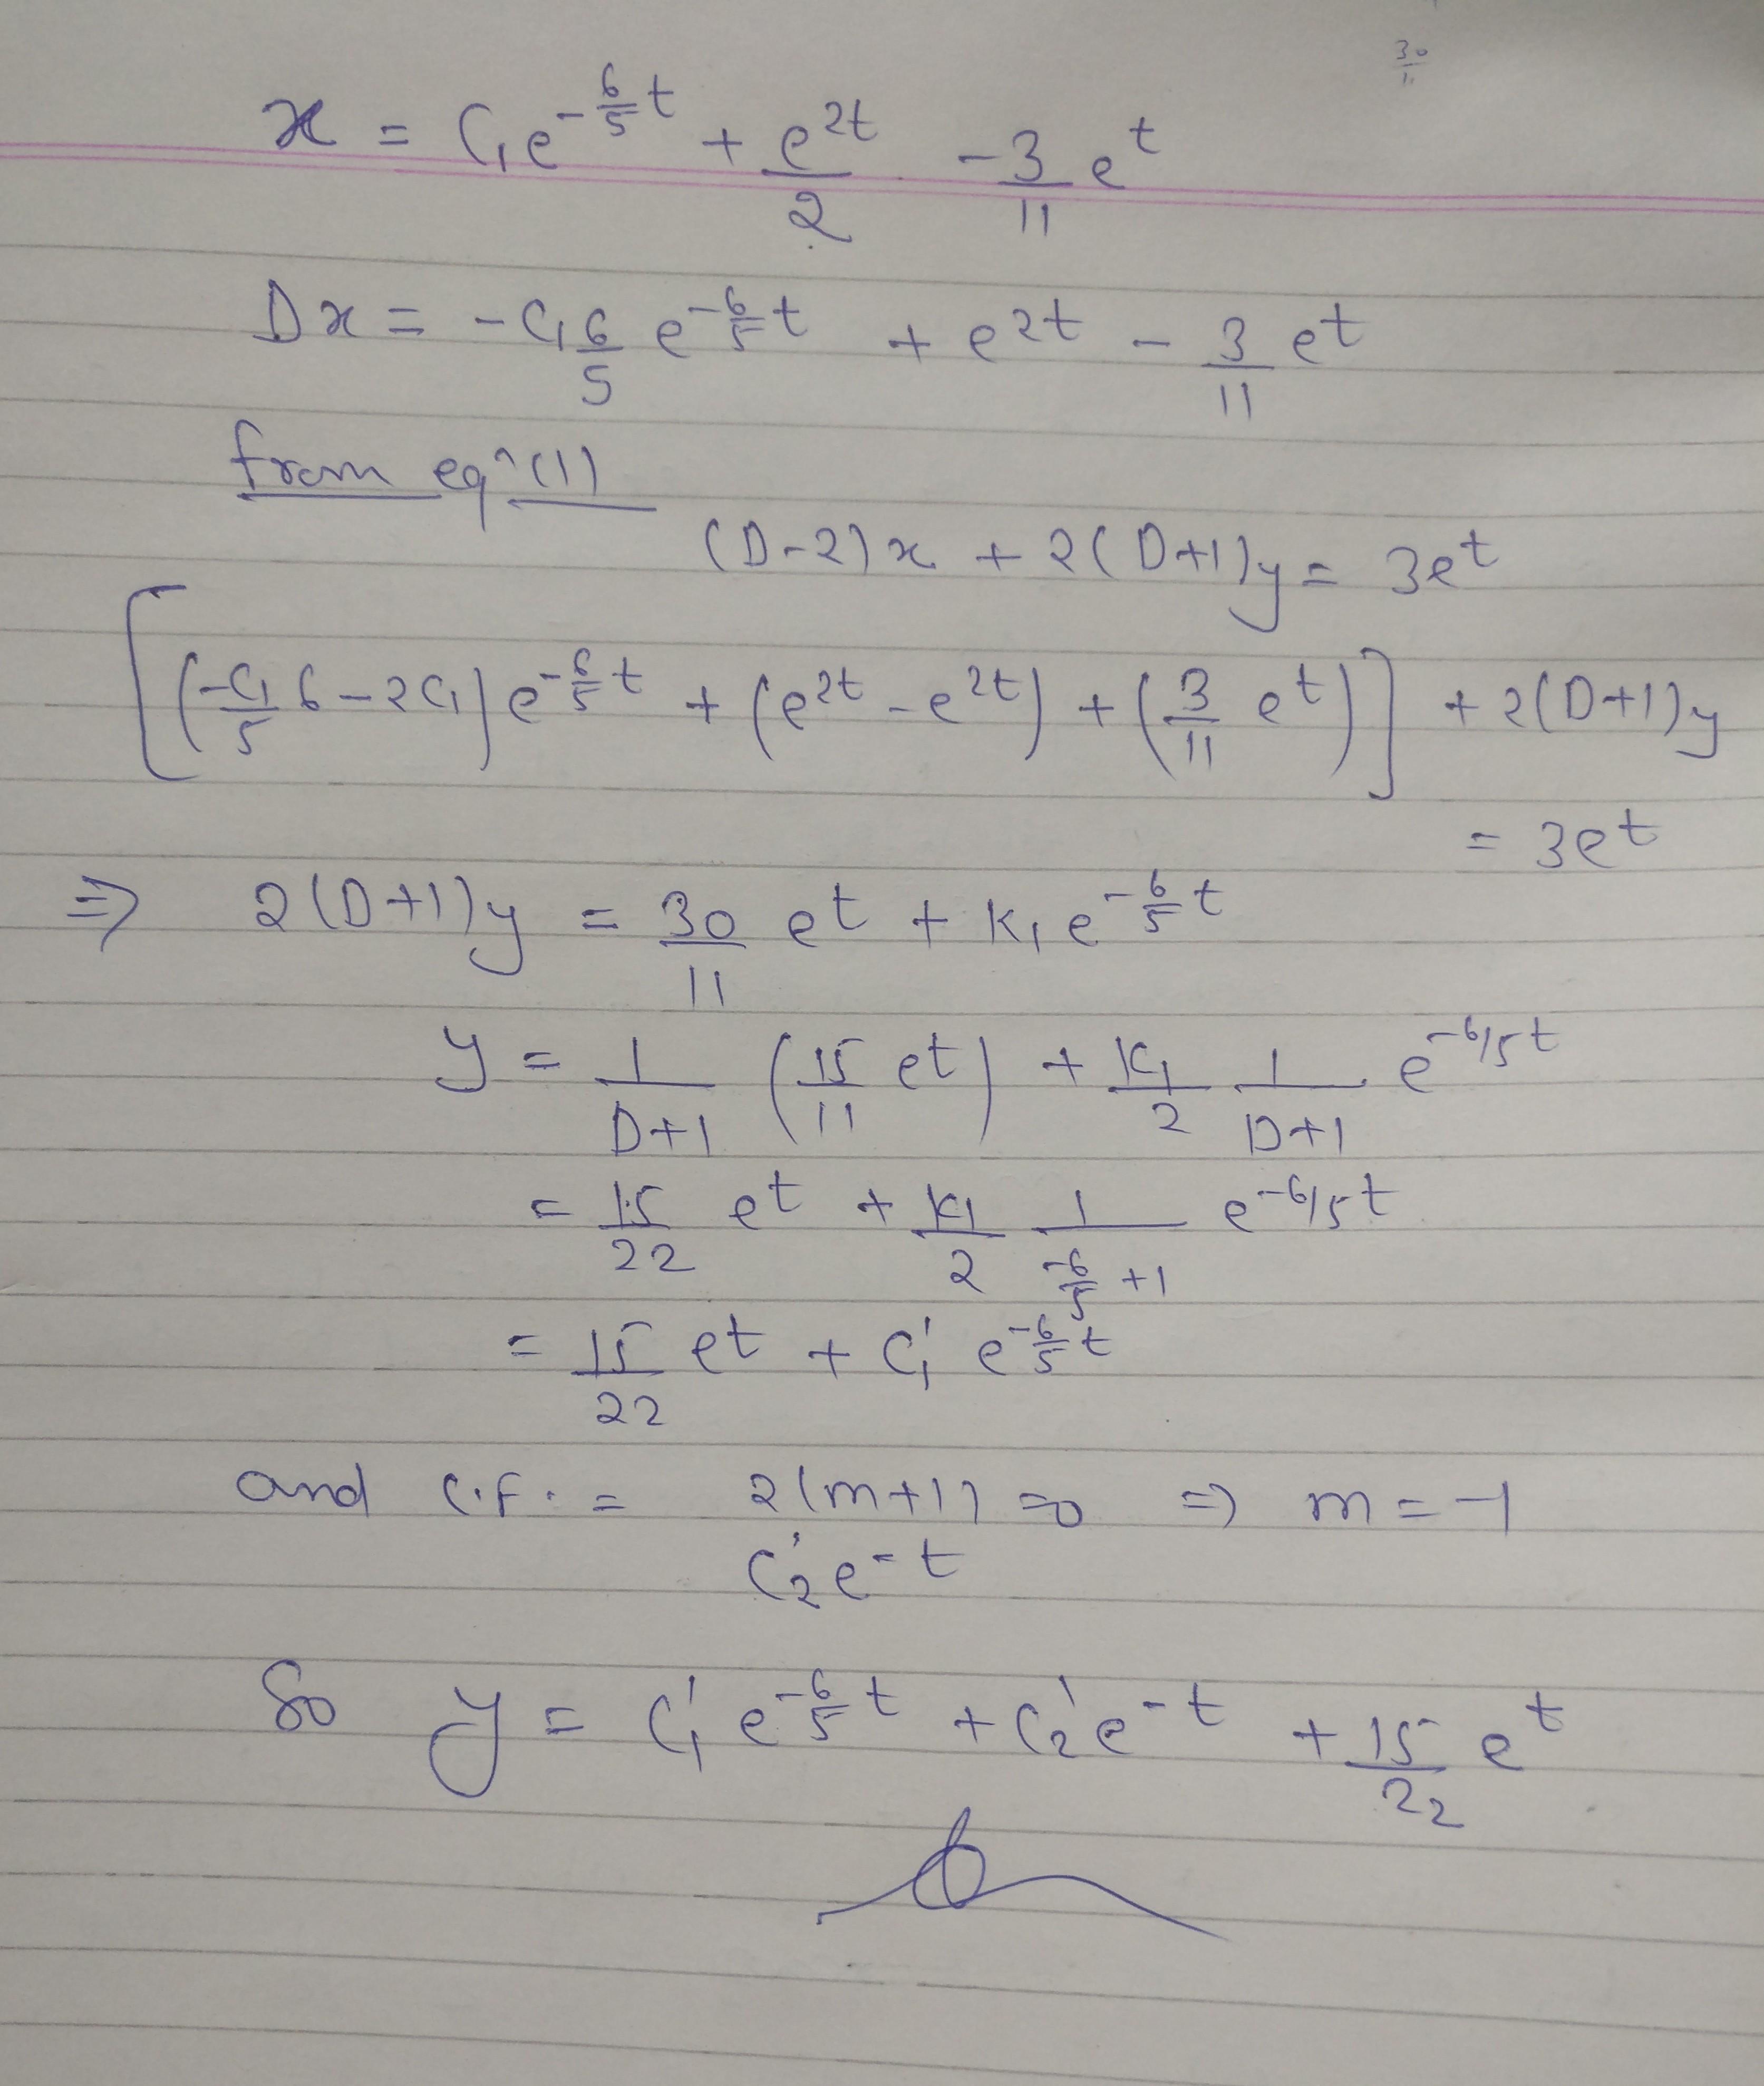 30/11
x = C₁e^{-6/5 t} + e^{2t}/2 - 3/11 e^t
Dx = -C₁ 6/5 e^{-6/5 t} + e^{2t} - 3/11 e^t
from eqⁿ(1)
(D-2)x + 2(D+1)y = 3e^t
[(-C₁/5 6 - 2C₁)e^{-6/5 t} + (e^{2t} - e^{2t}) + (3/11 e^t)] + 2(D+1)y
= 3e^t
⇒ 2(D+1)y = 30/11 e^t + K₁e^{-6/5 t}
y = 1/(D+1) (15/11 e^t) + K₁/2 1/(D+1) e^{-6/5 t}
= 15/22 e^t + K₁/2 1/(-6/5 + 1) e^{-6/5 t}
= 15/22 e^t + C₁' e^{-6/5 t}
and C.F. = 2(m+1) = 0 ⇒ m = -1
C₂'e^{-t}
So y = C₁' e^{-6/5 t} + C₂'e^{-t} + 15/22 e^t